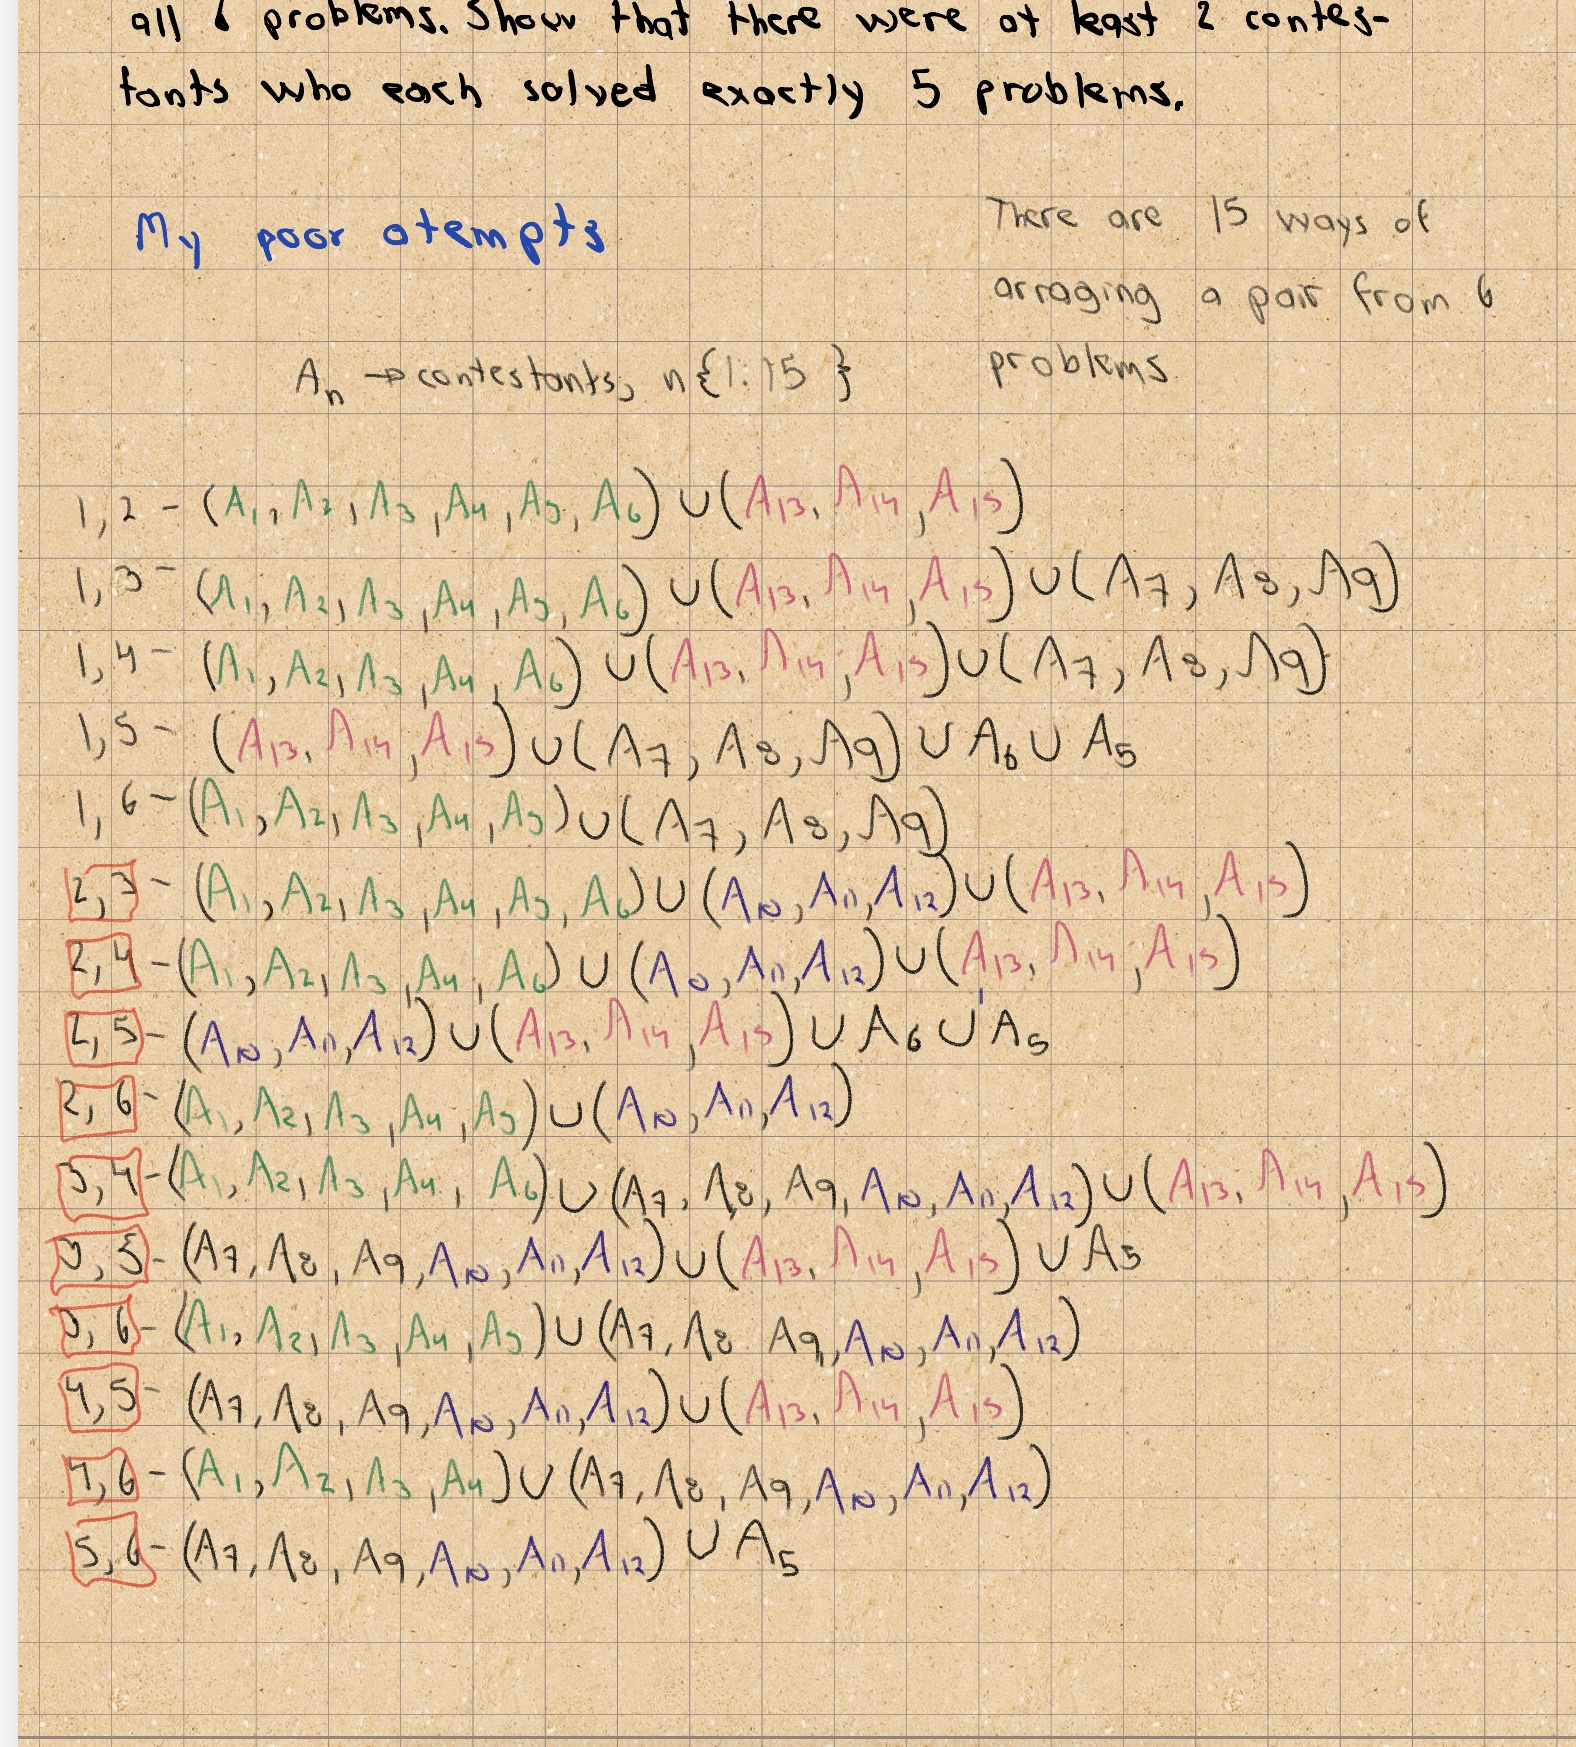 all 6 problems. Show that there were at least 2 contes-
tants who each solved exactly 5 problems.
My poor atempts
There are 15 ways of
arraging a pair from 6
problems
A_n → contestants, n{1:15}
1,2 - (A1, A2, A3, A4, A5, A6) ∪ (A13, A14, A15)
1,3 - (A1, A2, A3, A4, A5, A6) ∪ (A13, A14, A15) ∪ (A7, A8, A9)
1,4 - (A1, A2, A3, A4, A6) ∪ (A13, A14, A15) ∪ (A7, A8, A9)
1,5 - (A13, A14, A15) ∪ (A7, A8, A9) ∪ A6 ∪ A5
1,6 - (A1, A2, A3, A4, A5) ∪ (A7, A8, A9)
2,3 - (A1, A2, A3, A4, A5, A6) ∪ (A10, A11, A12) ∪ (A13, A14, A15)
2,4 - (A1, A2, A3, A4, A6) ∪ (A10, A11, A12) ∪ (A13, A14, A15)
2,5 - (A10, A11, A12) ∪ (A13, A14, A15) ∪ A6 ∪ A5
2,6 - (A1, A2, A3, A4, A5) ∪ (A10, A11, A12)
3,4 - (A1, A2, A3, A4, A6) ∪ (A7, A8, A9, A10, A11, A12) ∪ (A13, A14, A15)
3,5 - (A7, A8, A9, A10, A11, A12) ∪ (A13, A14, A15) ∪ A5
3,6 - (A1, A2, A3, A4, A5) ∪ (A7, A8 A9, A10, A11, A12)
4,5 - (A7, A8, A9, A10, A11, A12) ∪ (A13, A14, A15)
4,6 - (A1, A2, A3, A4) ∪ (A7, A8, A9, A10, A11, A12)
5,6 - (A7, A8, A9, A10, A11, A12) ∪ A5